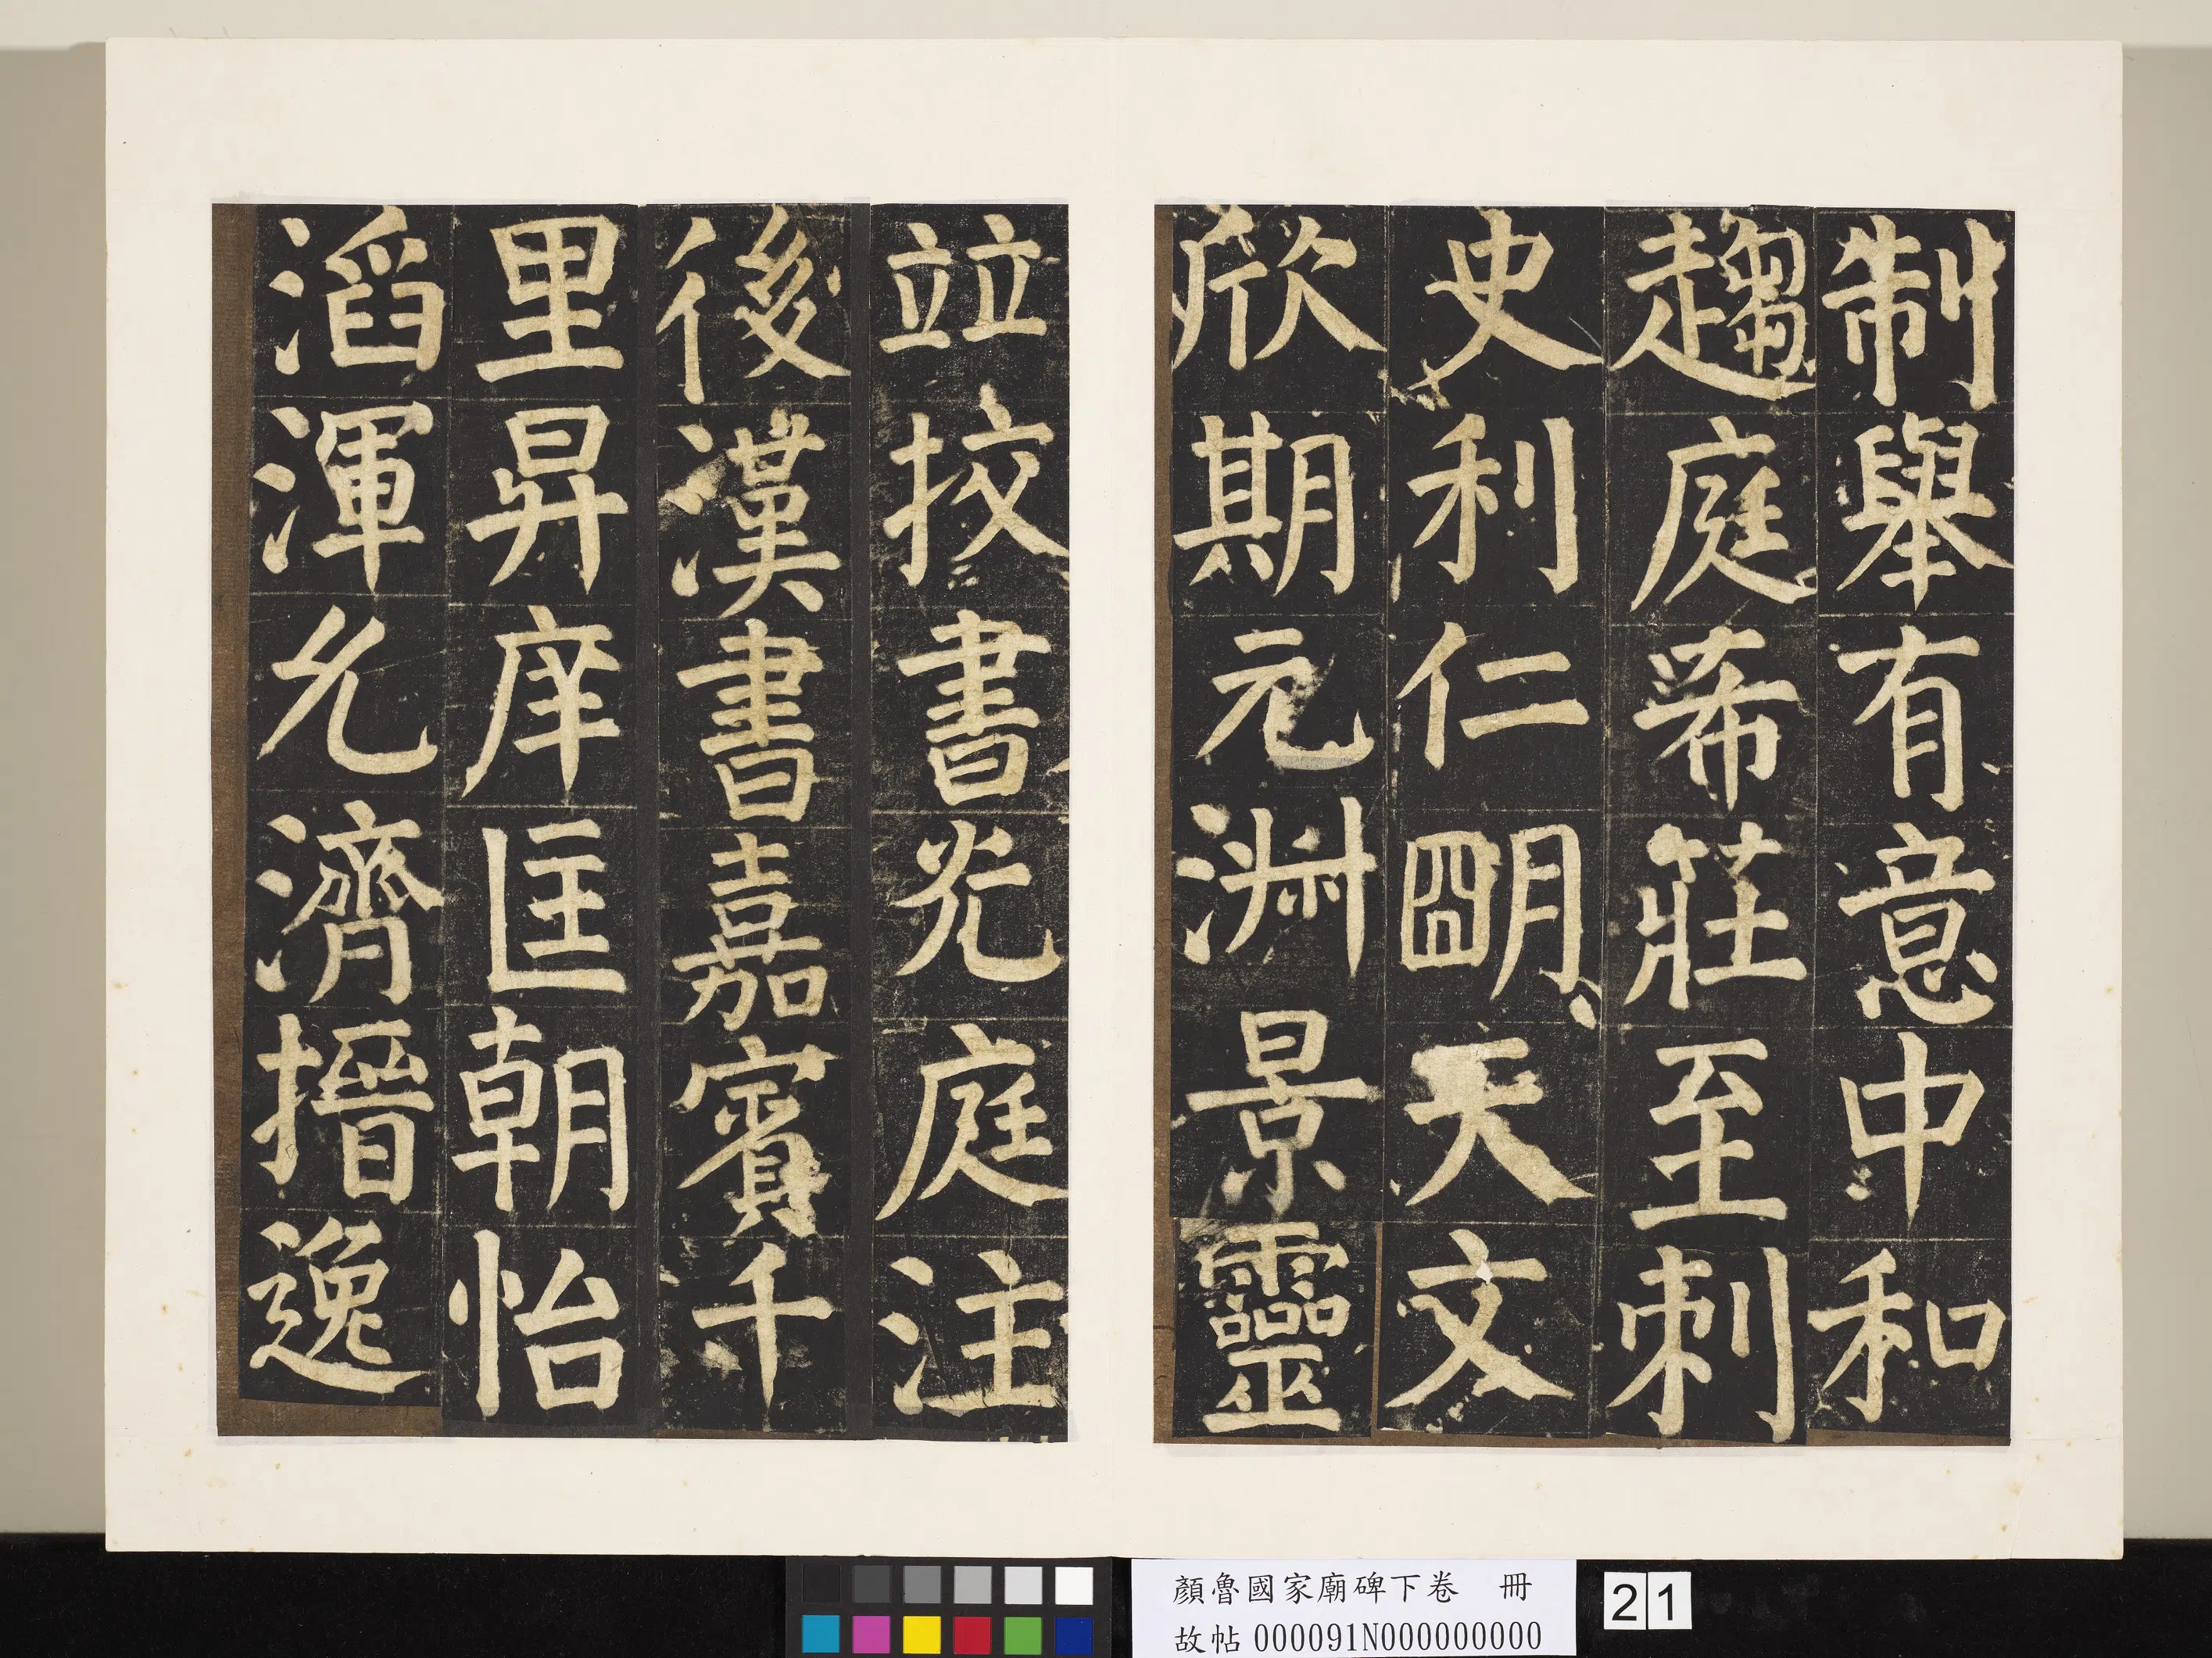 制舉有意中和
趨庭希莊至刺
史利仁朙天文
欣期元淵景靈
竝挍書光庭注
後漢書嘉賓千
里昇庠匡朝怡
滔渾允濟搢逸
顏魯國家廟碑下卷 冊
故帖000091N000000000
21